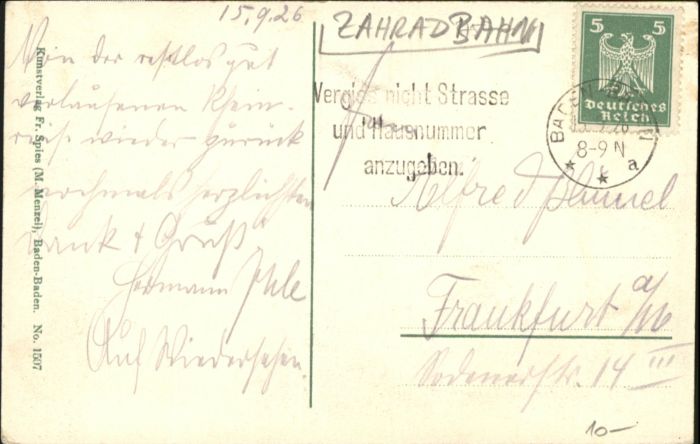 15.9.26
ZAHRADBAHN
Von der restlos gut
verlaufenen Klein-
reise wieder zurück
nochmals herzlichsten
Dank & Gruß
Hermann Ihle
Auf Wiedersehen.
Kunstverlag Fr. Spies (M. Menzel), Baden-Baden. No. 1507
Vergiss nicht Strasse
und Hausnummer
anzugeben.
5 5
Deutsches
Reich
BADEN
8-9 N
* * a
Alfred
Frankfurt a/M
Sodenerstr. 14 III
10-